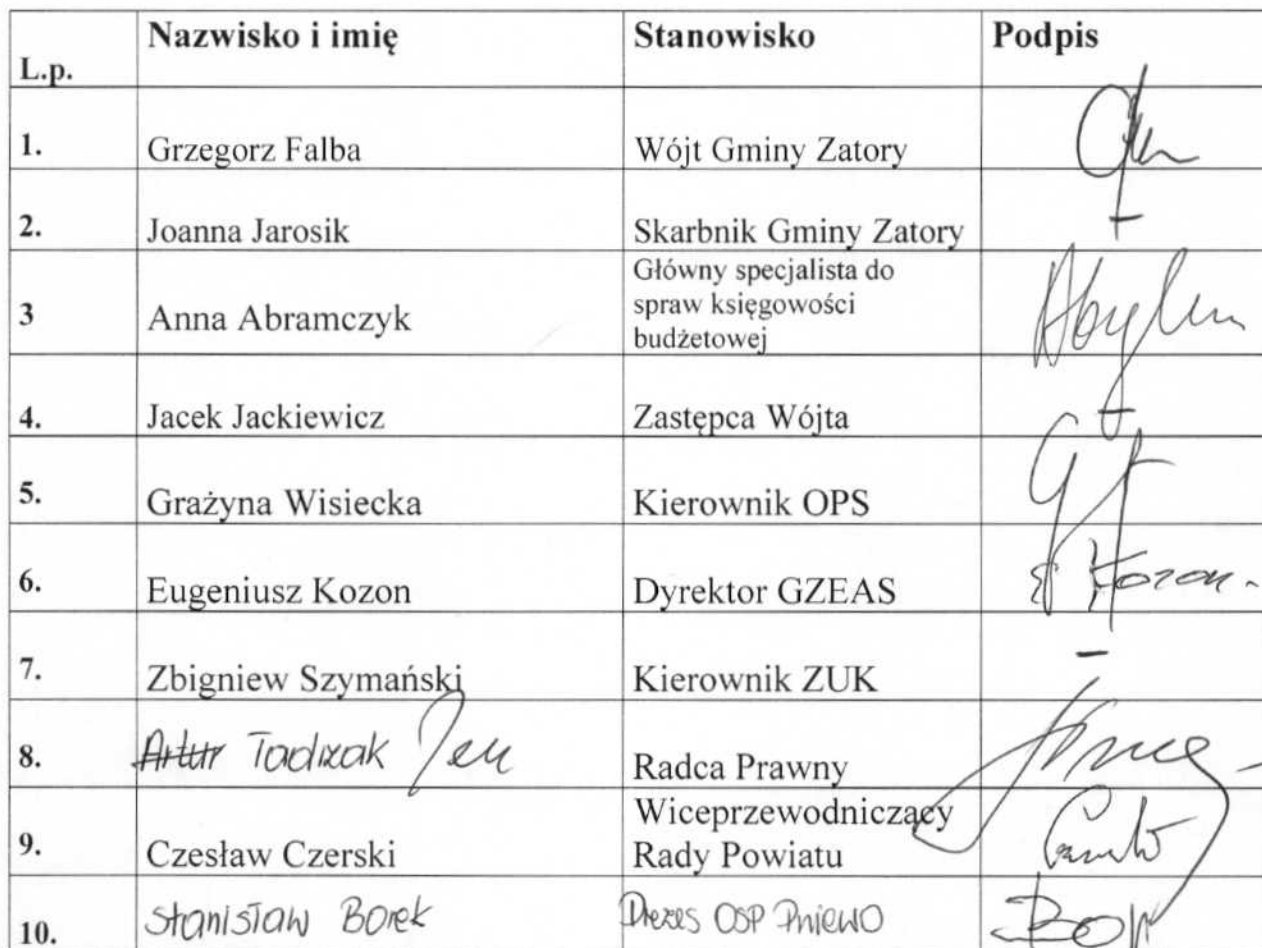 L.p. Nazwisko i imię Stanowisko Podpis
1. Grzegorz Falba Wójt Gminy Zatory
2. Joanna Jarosik Skarbnik Gminy Zatory –
3 Anna Abramczyk Główny specjalista do
spraw księgowości
budżetowej
4. Jacek Jackiewicz Zastępca Wójta –
5. Grażyna Wisiecka Kierownik OPS
6. Eugeniusz Kozon Dyrektor GZEAS E Kozon
7. Zbigniew Szymański Kierownik ZUK –
8. Artur Radca Prawny
9. Czesław Czerski Wiceprzewodniczący
Rady Powiatu
10. Stanisław Borek Prezes OSP Pniewo